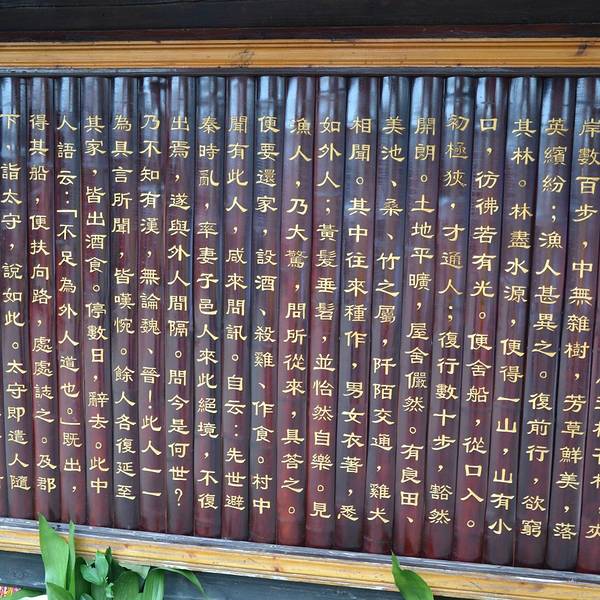 岸數百步,中無雜樹,芳草鮮美,落
英繽紛;漁人甚異之。復前行,欲窮
其林。林盡水源,便得一山,山有小
口,彷彿若有光。便舍船,從口入。
初極狹,才通人;復行數十步,豁然
開朗。土地平曠,屋舍儼然。有良田、
美池、桑、竹之屬,阡陌交通,雞犬
相聞。其中往來種作,男女衣著,悉
如外人;黃髮垂髫,並怡然自樂。見
漁人,乃大驚,問所從來,具答之。
便要還家,設酒、殺雞、作食。村中
聞有此人,咸來問訊。自云:先世避
秦時亂,率妻子邑人來此絕境,不復
出焉,遂與外人間隔。問今是何世?
乃不知有漢,無論魏、晉!此人一一
為具言所聞,皆嘆惋。餘人各復延至
其家,皆出酒食。停數日,辭去。此中
人語云:「不足為外人道也。」既出,
得其船,便扶向路,處處誌之。及郡
下,詣太守,說如此。太守即遣人隨